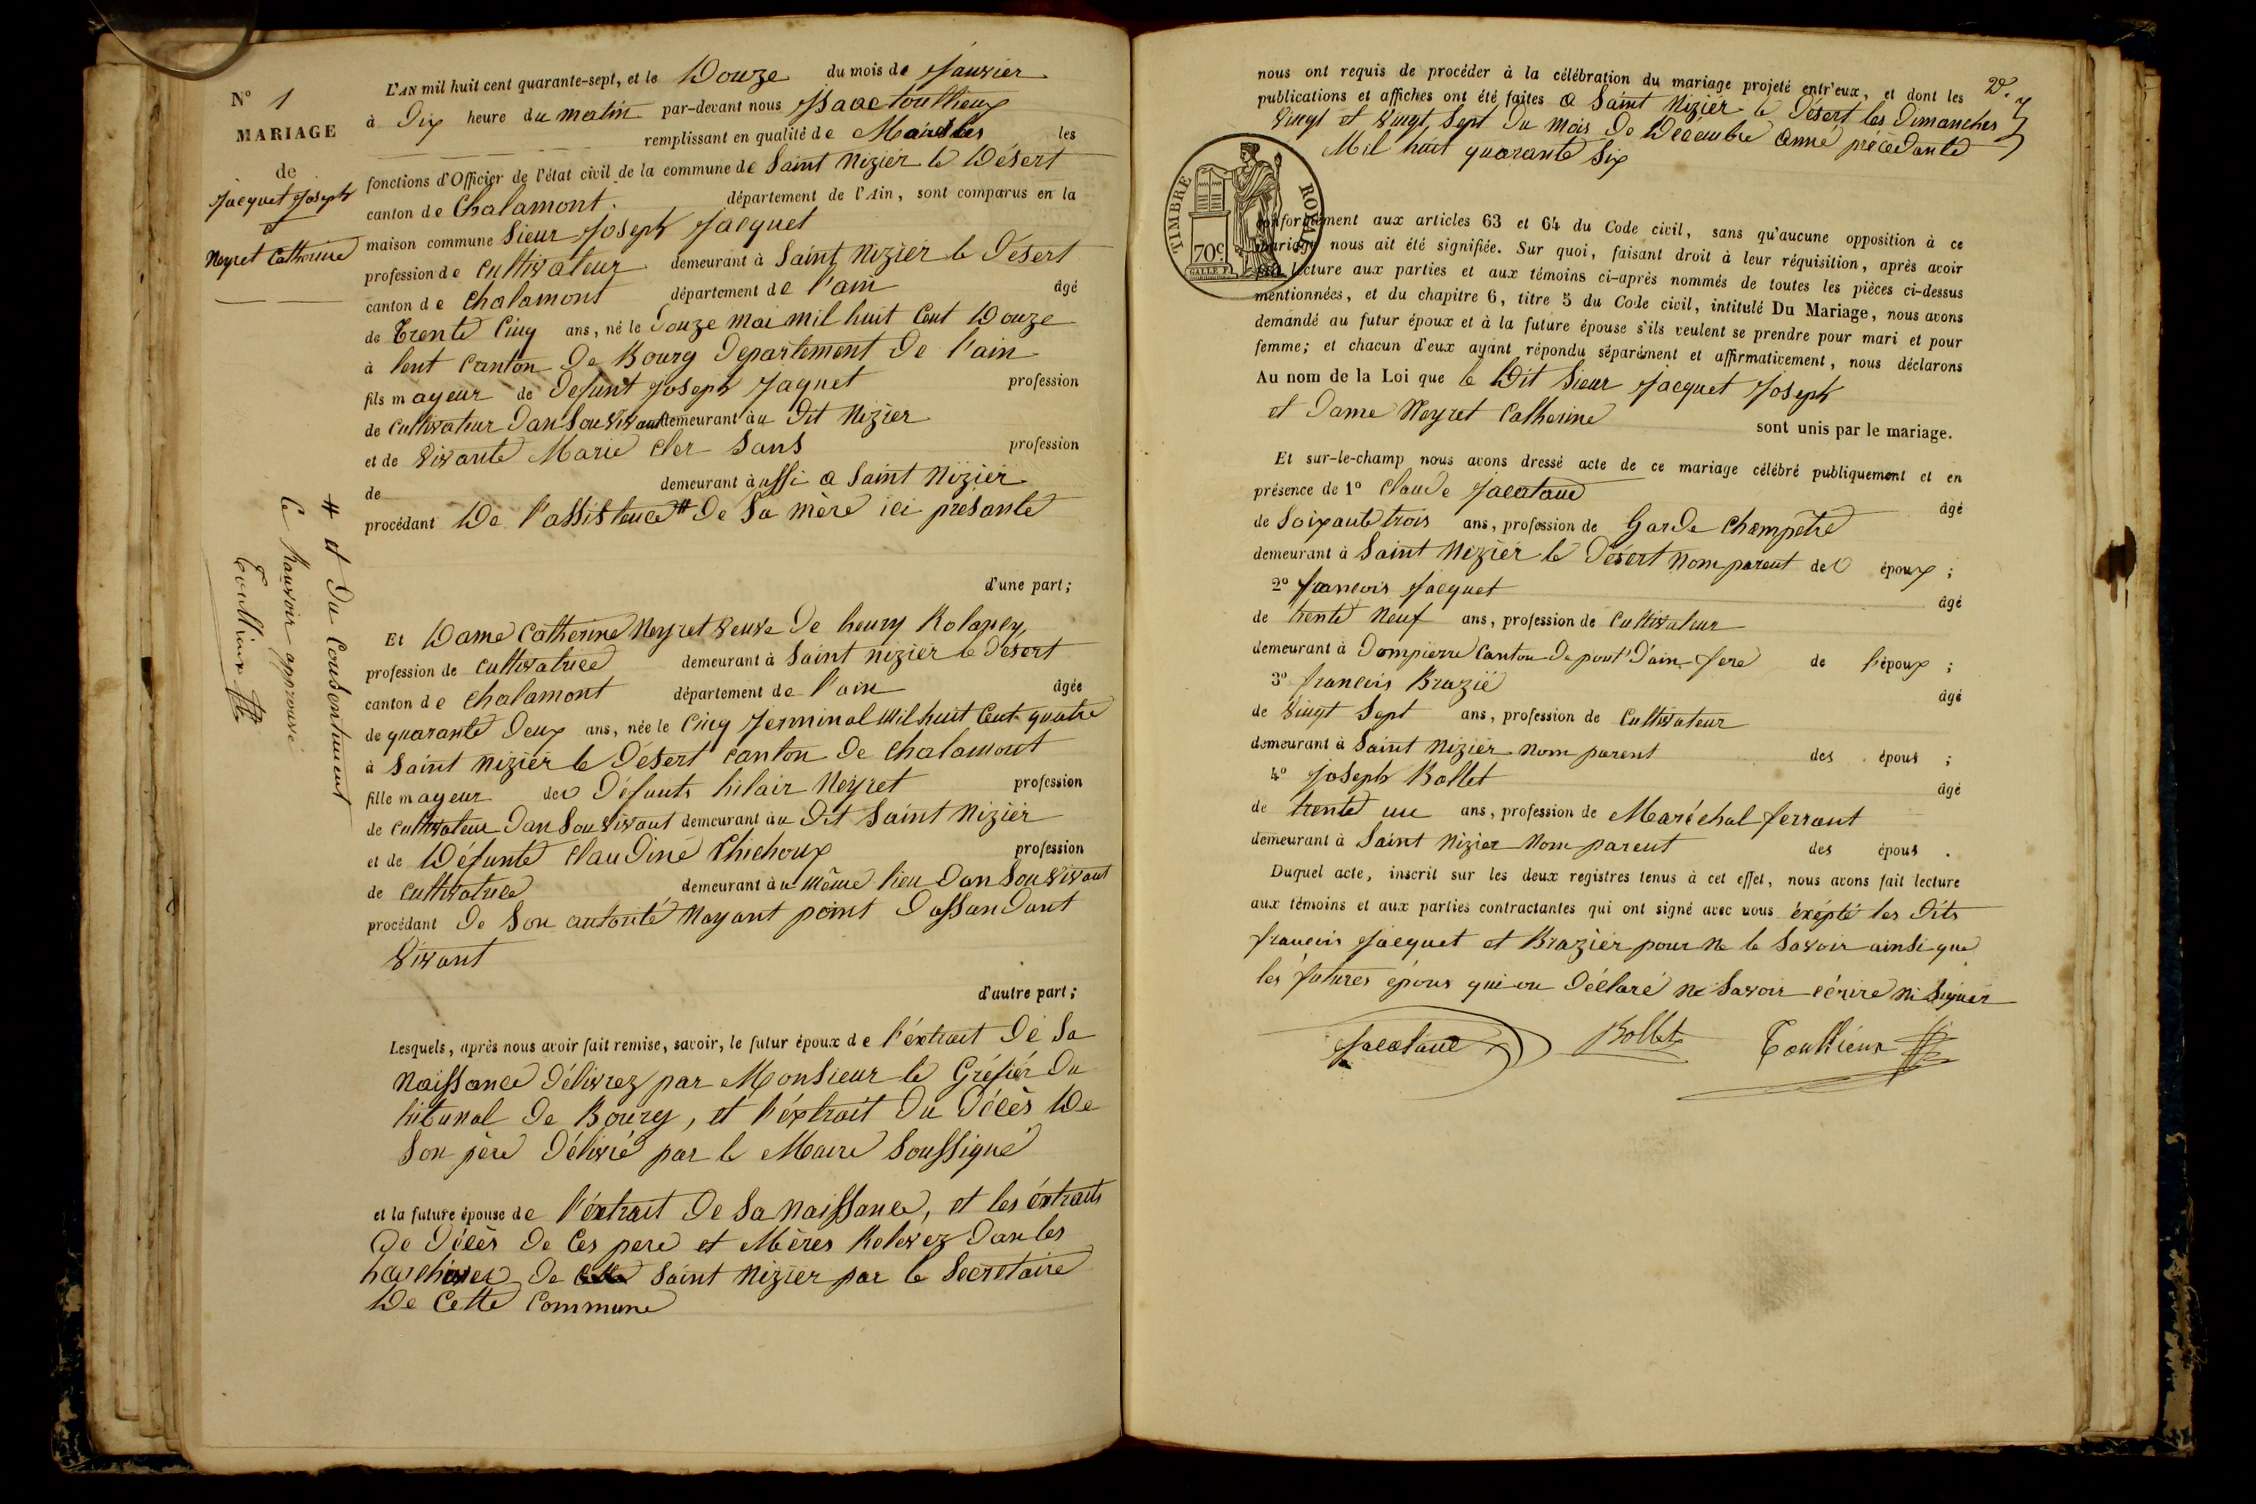 N° 1
MARIAGE
de
Jacquet Joseph
et
Neyret Catherine
L'AN mil huit cent quarante-sept, et le Douze du mois de Janvier
à Dix heure du matin par-devant nous Isaac Toultieux
remplissant en qualité de Maire les les
fonctions d'Officier de l'état civil de la commune de Saint Nizier le Désert
canton de Chalamont. département de l'Ain, sont comparus en la
maison commune Sieur Joseph Jacquet
profession de Cultivateur demeurant à Saint Nizier le Désert
canton de Chalamont département de l'ain âgé
de Trente Cinq ans, né le Douze mai mil huit Cent Douze
à lent Canton De Bourg Departement De l'ain
fils mayeur de Defunt Joseph Jaquet profession
de Cultivateur Dan Son vivant demeurant au Dit Nizier
et de vivante Marie Cler Sans profession
de demeurant à aussi a Saint Nizier
procédant De l'assistence # De Sa mère ici présante
# et Du Consentement
Ce Ranvoir approuvé
Toultieux
d'une part;
Et Dame Catherine Neyret veuve De henry Rolandy
profession de cultivatrice demeurant à Saint nizier le Désert
canton de Chalamont département de l'ain âgée
de quarante Deux ans, née le Cinq Jerminal Mil huit Cent quatre
à Saint nizier le Désert Canton De Chalamont
fille mayeur des Défunts hilair Neyret profession
de Cultivateur Dan Son vivant demeurant au Dit Saint Nizier
et de Défunte Claudine Chichoux profession
de Cultivatrice demeurant à u même lieu Dan Son vivant
procédant De Son autorité Nayant point Dassandant
vivant
d'autre part;
Lesquels, après nous avoir fait remise, savoir, le futur époux de l'éxtrait De Sa
Naissance Délivrez par Monsieur le Gréfiér Du
tribunal De Bourg, et l'éxtrait Du Décès De
Son père Délivré par le Maire Soussigné
et la future épouse de l'éxtrait De Sa Naissance, et les éxtraits
De Décès De Ces pere et Mères Relevez Dan les
harchives De Saint Nizier par le Secretaire
De Cette Commune
nous ont requis de procéder à la célébration du mariage projeté entr'eux, et dont les
publications et affiches ont été faites a Saint Nizier le Désert les Dimanches
Vingt et Vingt Sept Du mois De Décembre Anné précédante
Mil huit quarante Six
2e.
TIMBRE ROYAL
70c
conformément aux articles 63 et 64 du Code civil, sans qu'aucune opposition à ce
mariage nous ait été signifiée. Sur quoi, faisant droit à leur réquisition, après avoir
fait lecture aux parties et aux témoins ci-après nommés de toutes les pièces ci-dessus
mentionnées, et du chapitre 6, titre 5 du Code civil, intitulé Du Mariage, nous avons
demandé au futur époux et à la future épouse s'ils veulent se prendre pour mari et pour
femme; et chacun d'eux ayant répondu séparément et affirmativement, nous déclarons
Au nom de la Loi que le Dit Sieur Jacquet Joseph
et Dame Neyret Catherine
sont unis par le mariage.
Et sur-le-champ nous avons dressé acte de ce mariage célébré publiquement et en
présence de 1° Claude Jacotaud âgé
de Soixante trois ans, profession de Garde Champêtre
demeurant à Saint Nizier le Désert Nom parent des époux;
2° françois Jacquet âgé
de trente Neuf ans, profession de Cultivateur
demeurant à Dompierre Canton De pont D'ain frere de l'époux;
3° françois Brazié âgé
de Vingt Sept ans, profession de Cultivateur
demeurant à Saint Nizier nom parent des épous;
4° Joseph Bollet âgé
de trente un ans, profession de Maréchal ferrant
demeurant à Saint Nizier Nom parent des épous.
Duquel acte, inscrit sur les deux registres tenus à cet effet, nous avons fait lecture
aux témoins et aux parties contractantes qui ont signé avec nous éxépté les Dits
françois Jacquet et Brazier pour Ne le Savoir ainsi que
les futures épous qui on Déclaré Ne Savoir écrire Ni Signér
Jacotaud Bollet Toultieux